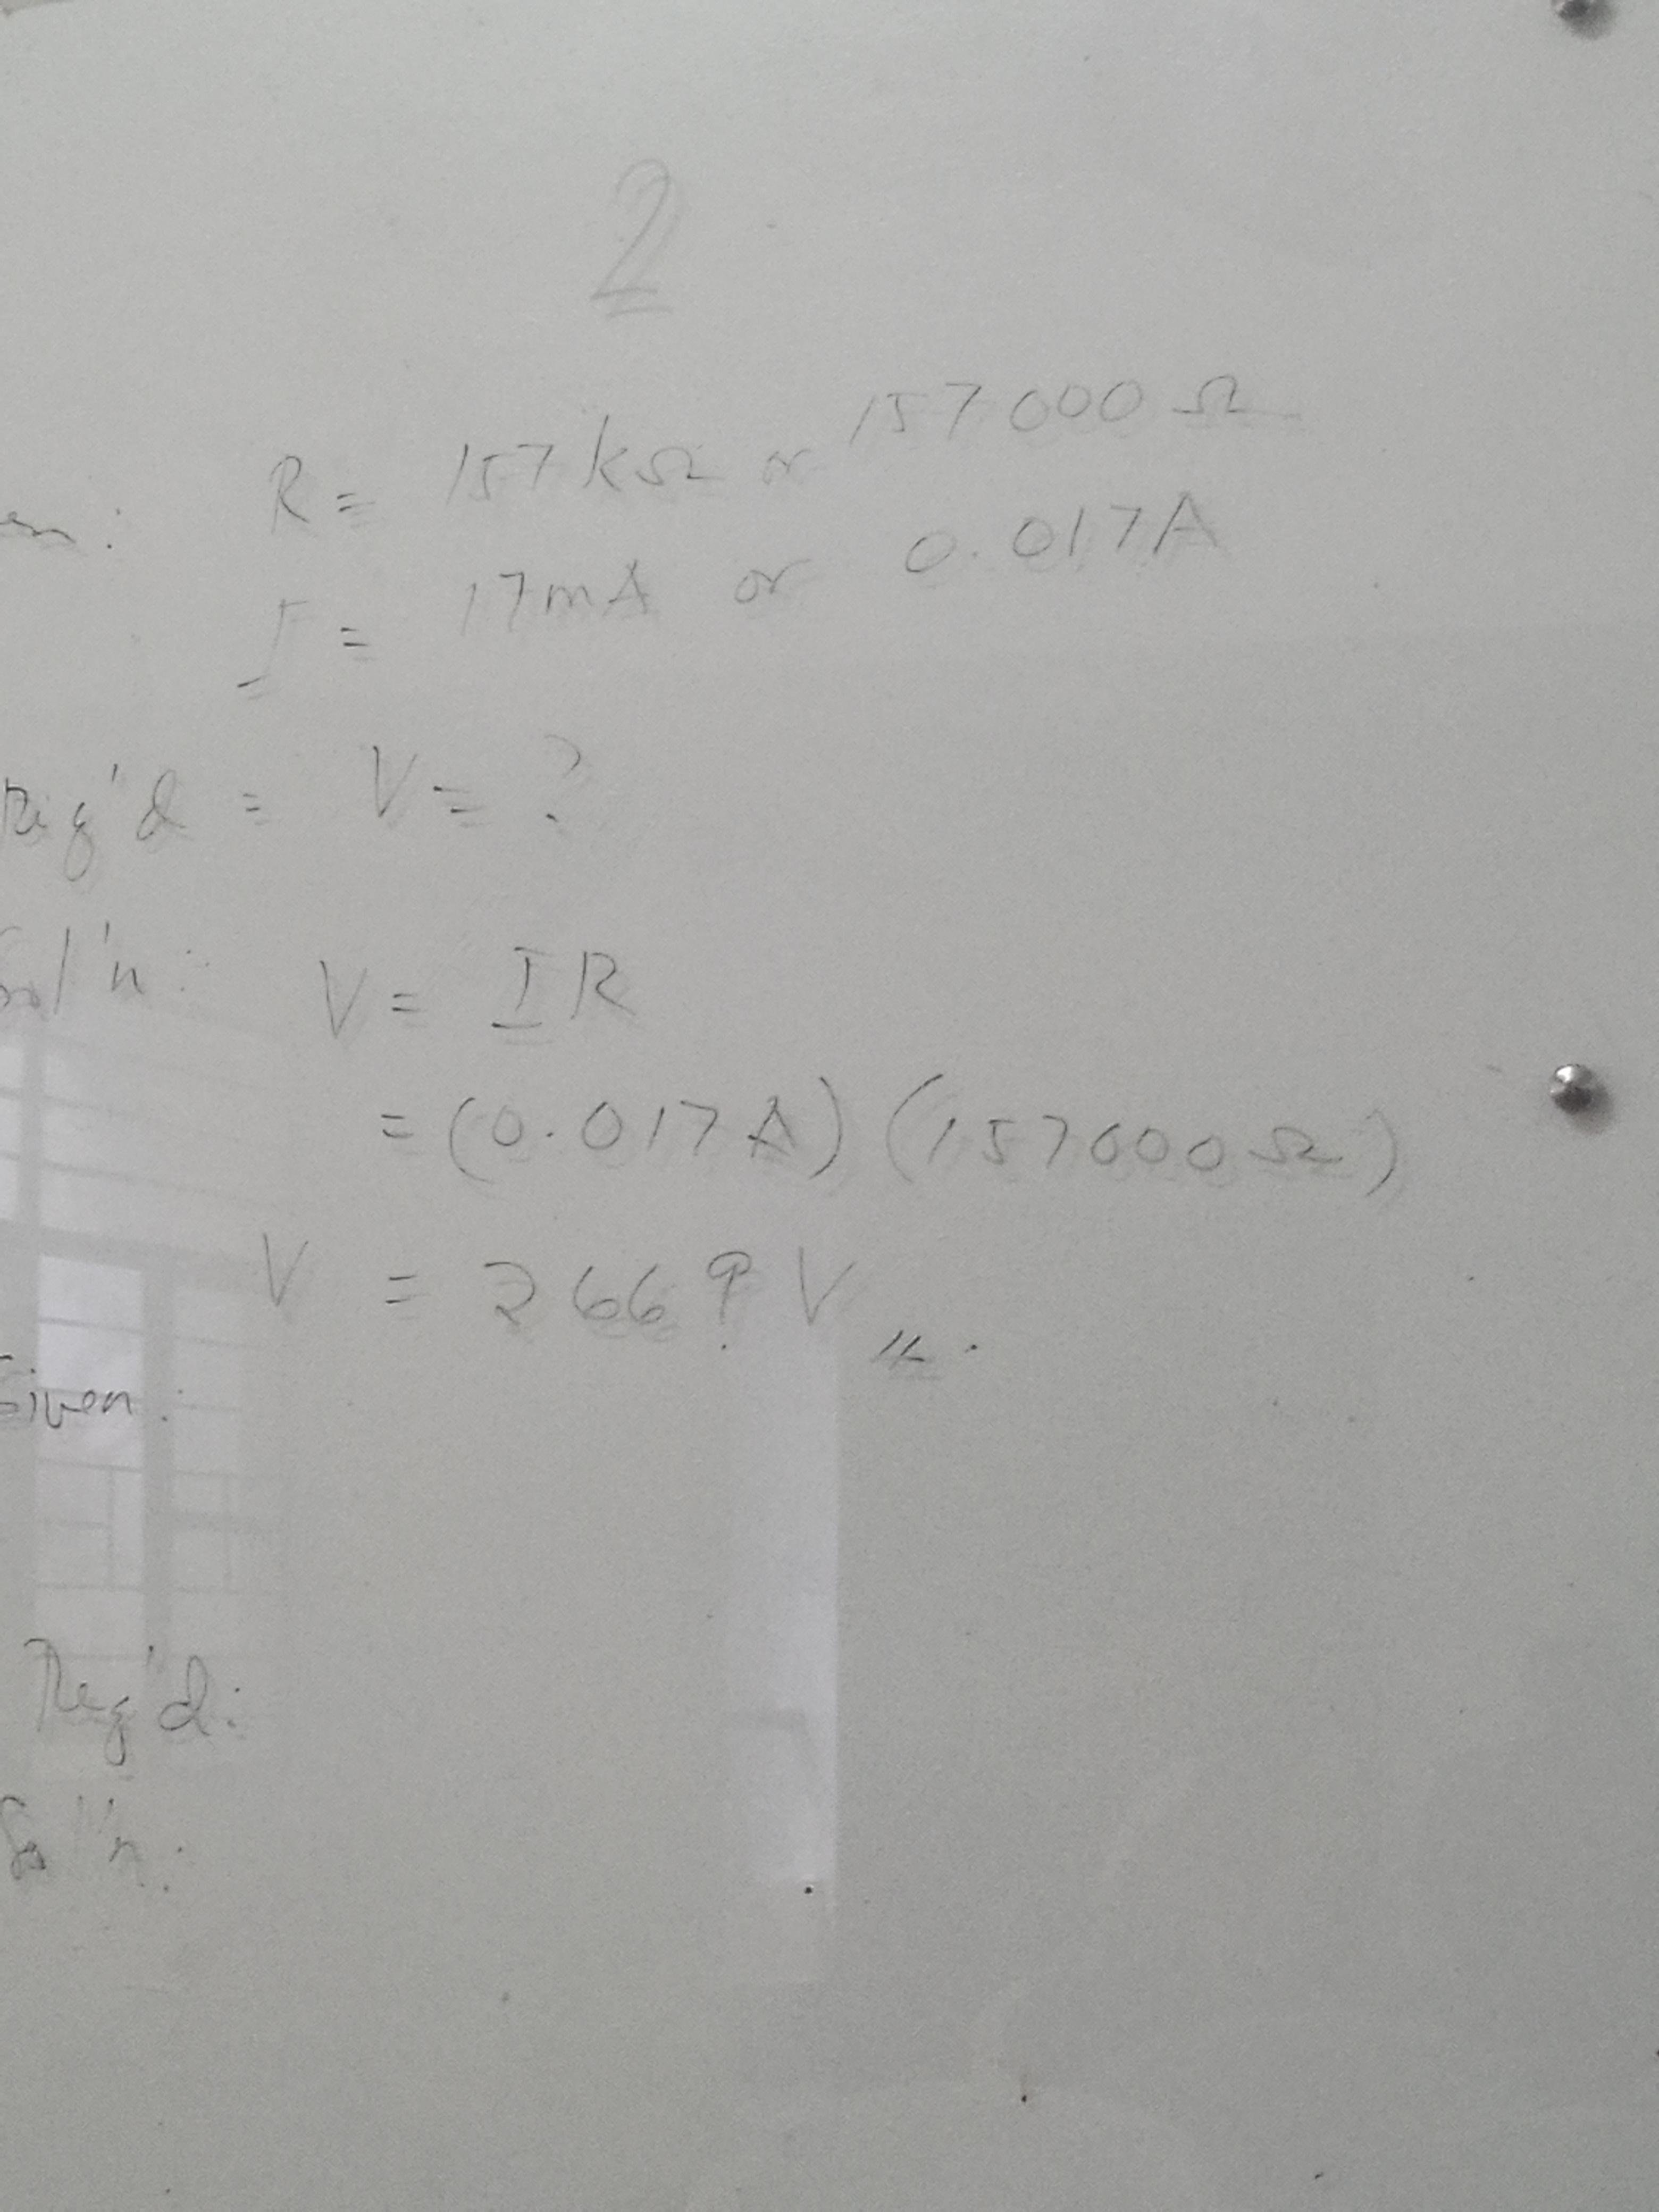 2
en: R = 157 kΩ or 157000 Ω
I = 17mA or 0.017A
Req'd = V = ?
Sol'n: V = IR
= (0.017A) (157000Ω)
V = 2669 V //.
Given:
Req'd:
Sol'n: